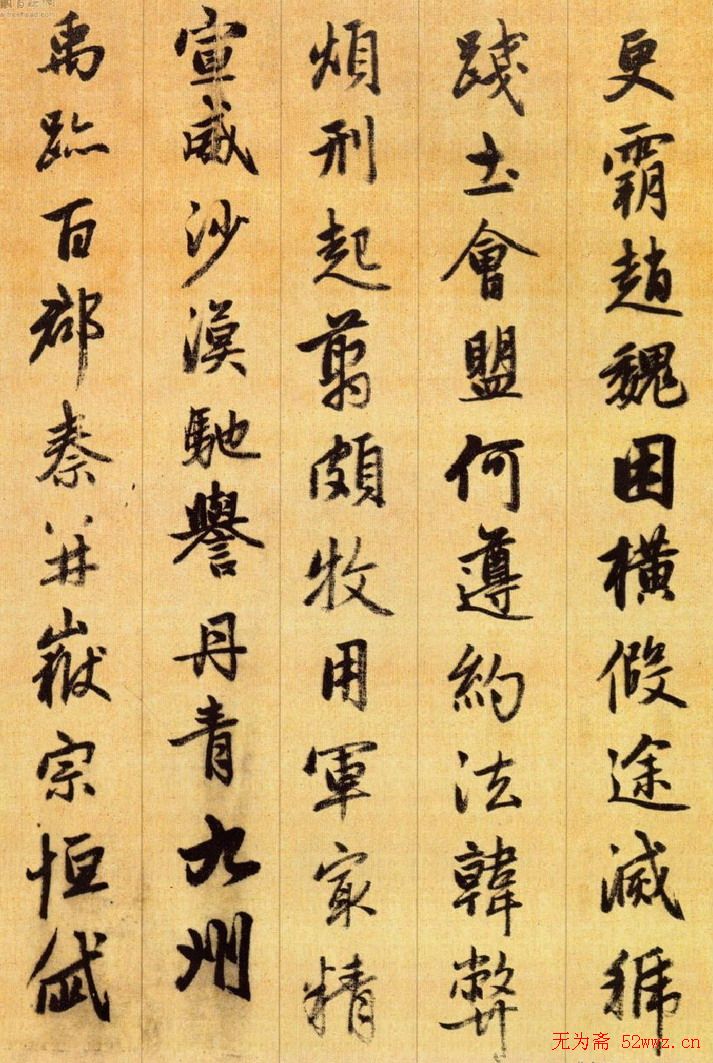 更霸趙魏困橫假途滅虢
踐土會盟何遵約法韓弊
煩刑起翦頗牧用軍㝡精
宣威沙漠馳譽丹青九州
禹跡百郡秦并嶽宗恒岱
无为斋 52wwz.cn